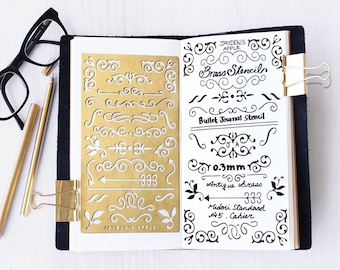 JAYDEN'S APPLE
JAYDEN'S
APPLE
Brass Stencils
Bullet Journal Stencil
0.3mm
Antique Brass
Midori Standard
A5, Cahier